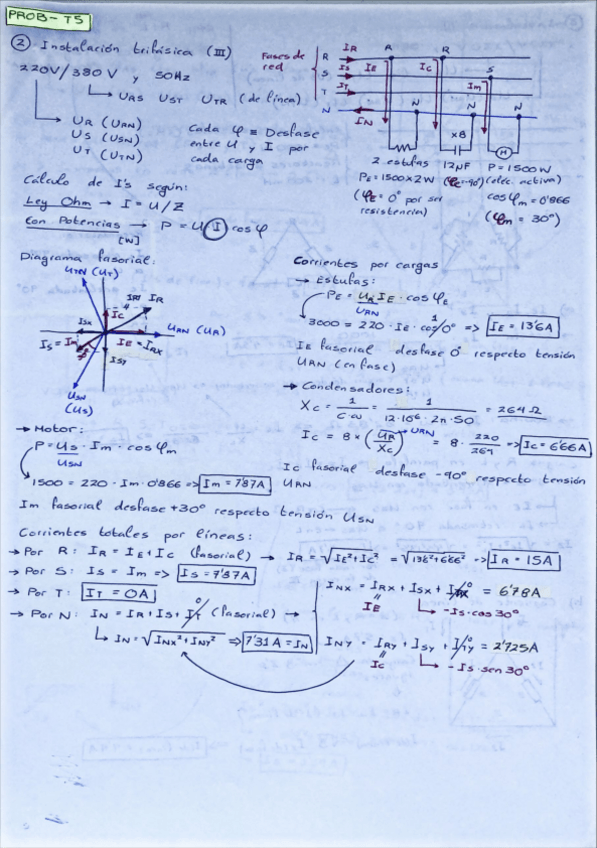 PROB-T5
② Instalación trifásica (III)
220V/380 V y 50Hz
URS UST UTR (de línea)
UR (URN)
US (USN)
UT (UTN)
Cada φ ≡ Desfase
entre U y I por
cada carga
Fases de
red
R
S
T
N
IR
IS
IT
IN
IE
IC
Im
R
R
S
N
N
N
x8
M
2 estufas
PE = 1500x2W
(φE = 0° por ser
resistencia)
12μF
(φc = -90°)
P = 1500W
(eléc. activa)
cosφm = 0'866
(φm = 30°)
Cálculo de I's según:
Ley Ohm → I = U/Z
Con Potencias → P = U I cosφ
[W]
Diagrama fasorial:
UTN (UT)
IC
IRY
IR
ISX
URN (UR)
IS = Im
IE = IRX
ISY
USN
(US)
Corrientes por cargas
→ Estufas:
PE = UR IE · cosφE
URN
3000 = 220 · IE · cos 0° => IE = 13'6A
1
IE fasorial desfase 0° respecto tensión
URN (en fase)
→ Condensadores:
Xc = 1/C·ω = 1/12·10⁻⁶·2π·50 = 264 Ω
Ic = 8 × (UR/Xc) = 8 · 220/264 => Ic = 6'66A
URN
Ic fasorial desfase -90° respecto tensión
URN
→ Motor:
P = US · Im · cosφm
USN
1500 = 220 · Im · 0'866 => Im = 7'87A
Im fasorial desfase +30° respecto tensión USN
Corrientes totales por líneas:
→ Por R: IR = IE + IC (fasorial) → IR = √IE²+IC² = √13'6²+6'66² => IR = 15A
→ Por S: IS = Im => IS = 7'87A
→ Por T: IT = 0A
→ Por N: IN = IR + IS + IT (fasorial) →
0
IN = √INX² + INY² => 7'31A = IN
INX = IRX + ISX + ITX = 6'78A
0
IE
→ -IS·cos 30°
INY = IRY + ISY + ITY = 2'725A
0
IC
→ -IS·sen 30°